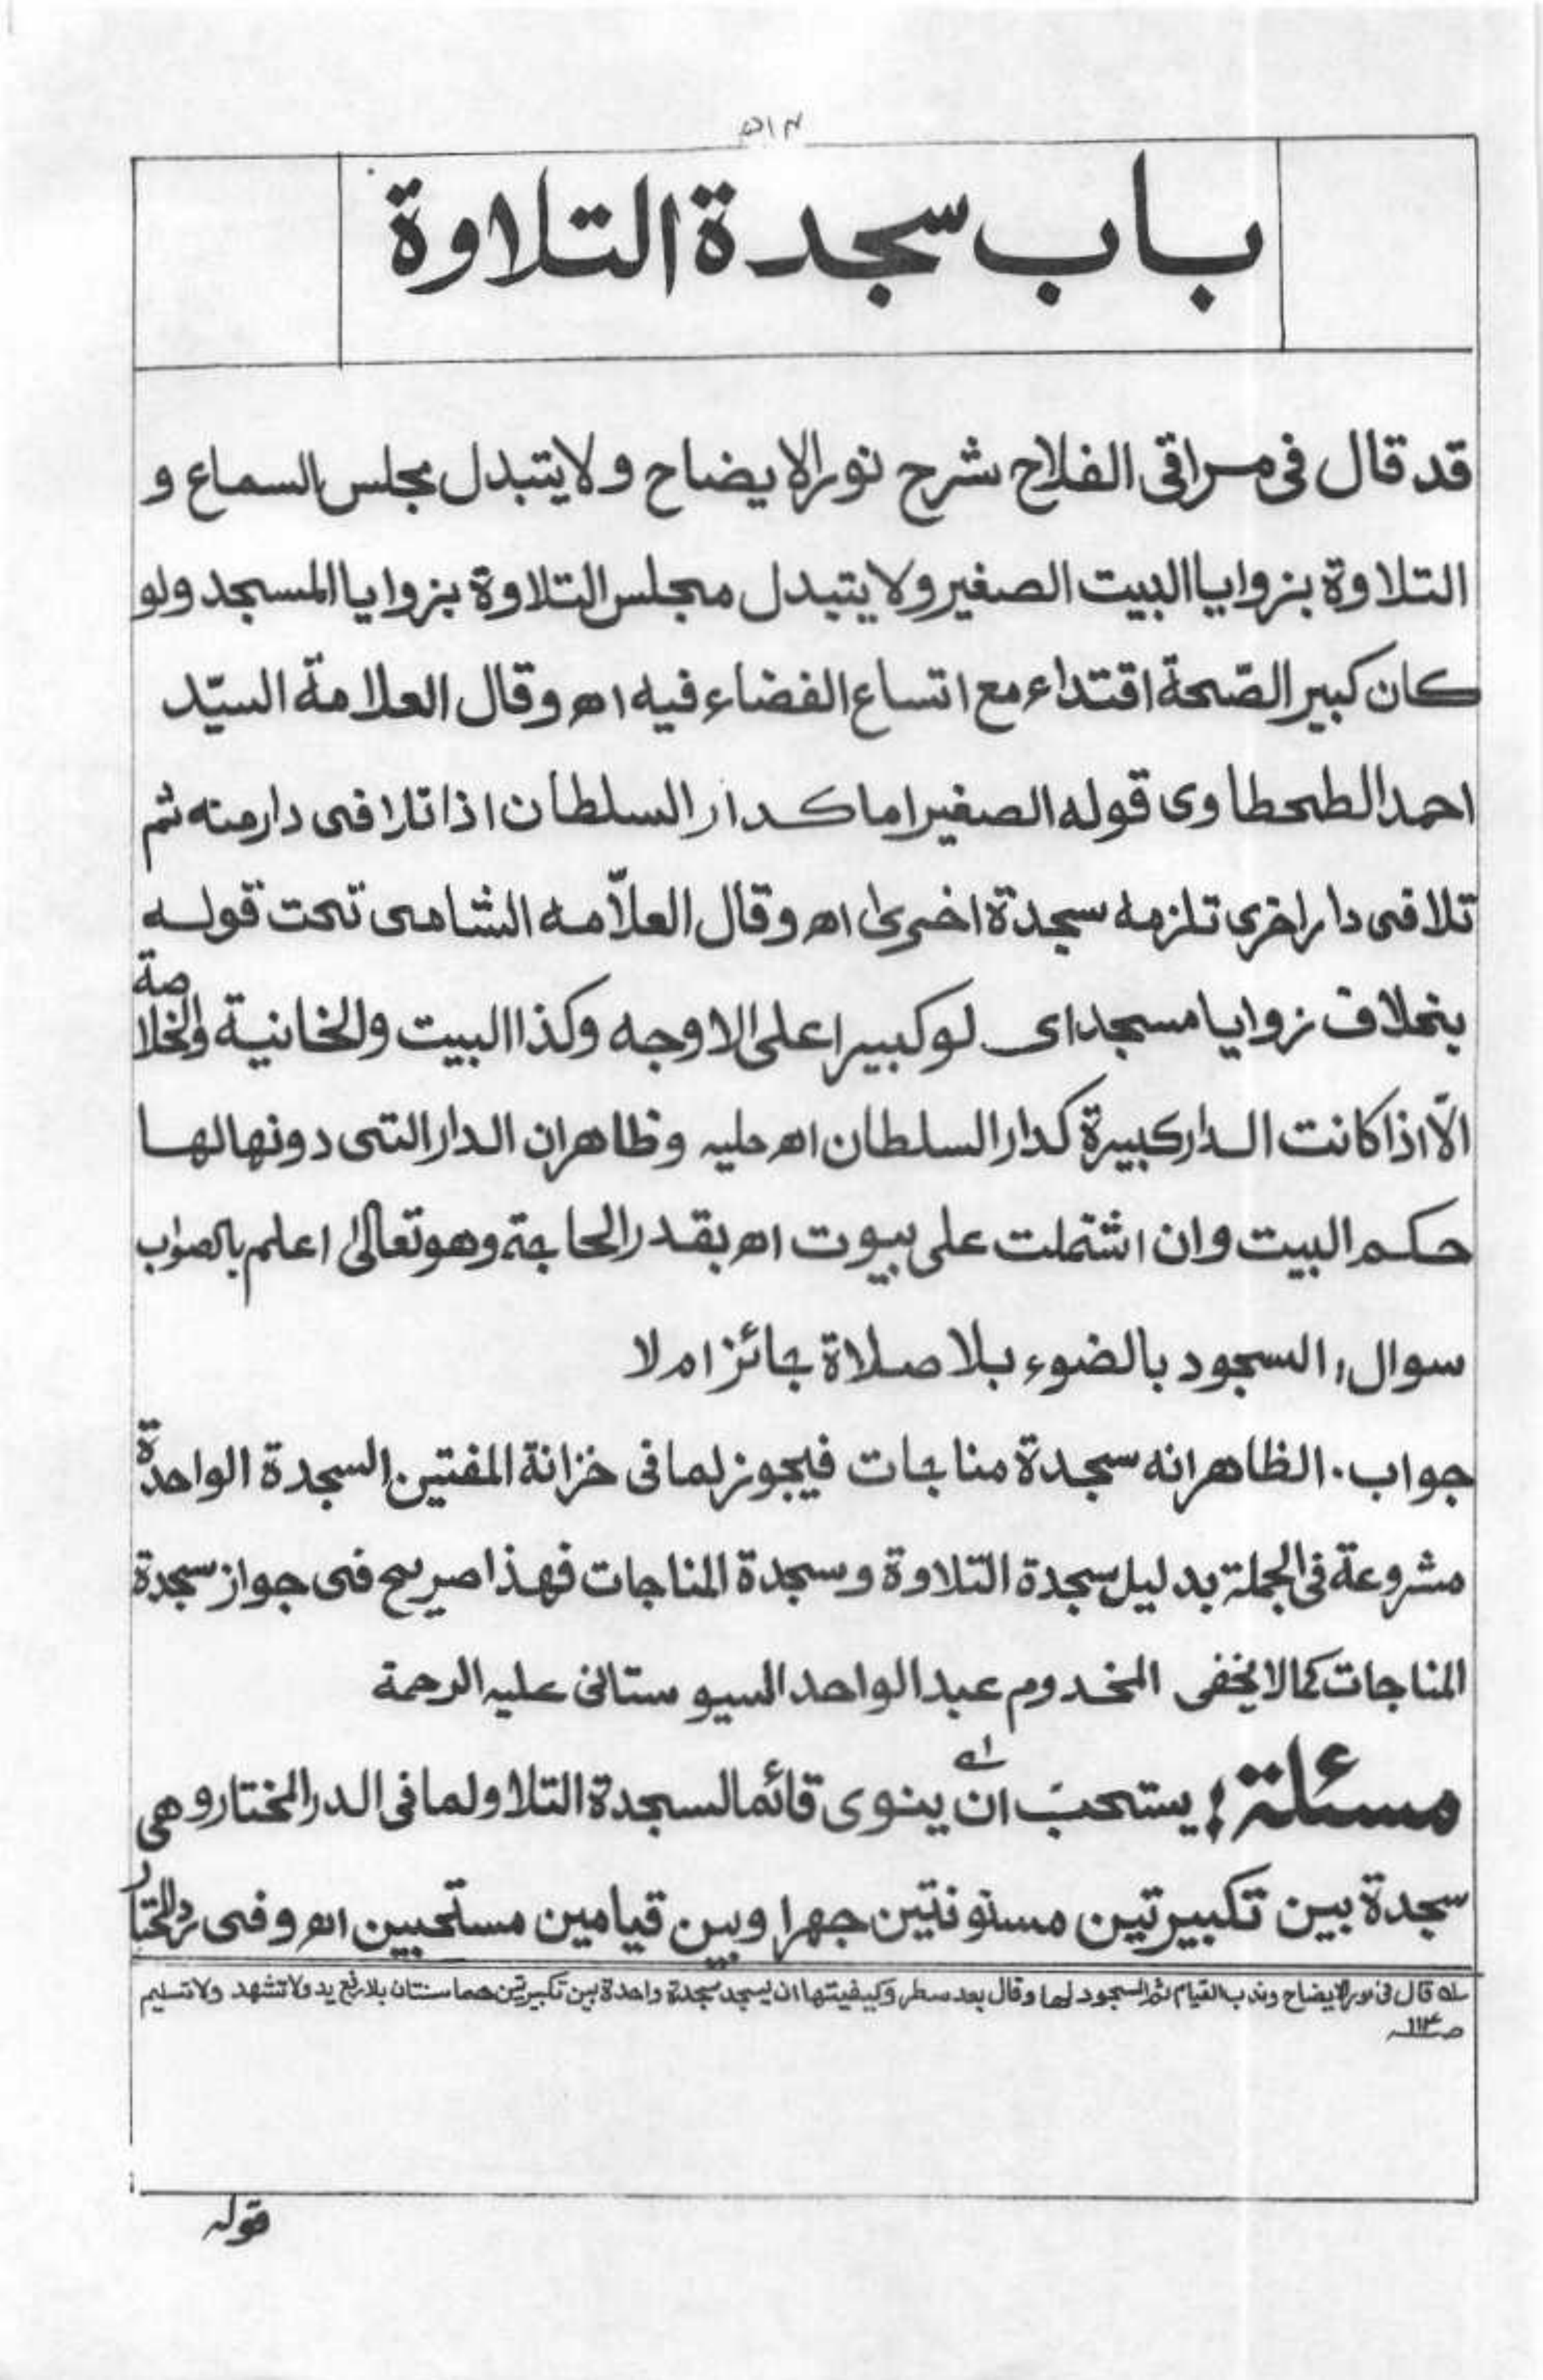 ۵۱۴
باب سجدة التلاوة
قد قال فی مراقی الفلاح شرح نور الایضاح ولا یتبدل مجلس السماع و
التلاوة بزوایا البیت الصغیر ولا یتبدل مجلس التلاوة بزوایا المسجد ولو
کان کبیر الصّحة اقتداء مع اتساع الفضاء فیه اھ وقال العلامة السیّد
احمد الطحطاوی قوله الصغیر اما کدار السلطان اذا تلا فی دار منه ثم
تلا فی دار اخری تلزمه سجدة اخریٰ اھ وقال العلاّمه الشامی تحت قوله
بخلاف زوایا مسجد ای لو کبیرا علی الاوجه وکذا البیت والخانیة والخلاصة
الاّ اذا کانت الدار کبیرة کدار السلطان اھ حلیه وظاهر ان الدار التی دونها لها
حکم البیت وان اشتملت علی بیوت اھ بقدر الحاجة وهو تعالیٰ اعلم بالصواب
سوال، السجود بالضوء بلا صلاة جائز ام لا
جواب. الظاهر انه سجدة مناجات فیجوز لما فی خزانة المفتین. السجدة الواحدة
مشروعة فی الجملة بدلیل سجدة التلاوة وسجدة المناجات فهذا صریح فی جواز سجدة
المناجات کما لا یخفی المخدوم عبد الواحد السیوستانی علیه الرحمة
مسئلة: یستحبّ ان ینوی قائما لسجدة التلاو لما فی الدر المختار وهی
سجدة بین تکبیرتین مسنونتین جهرا وبین قیامین مستحبین اھ وفی رد المحتار
لے قال فی نور الایضاح وندب القیام ثم السجود لها وقال بعد سطر وکیفیتها ان یسجد سجدة واحدة بین تکبیرتین هما سنتان بلا رفع ید ولا تشهد ولا تسلیم
صـ۱۱۴
قوله